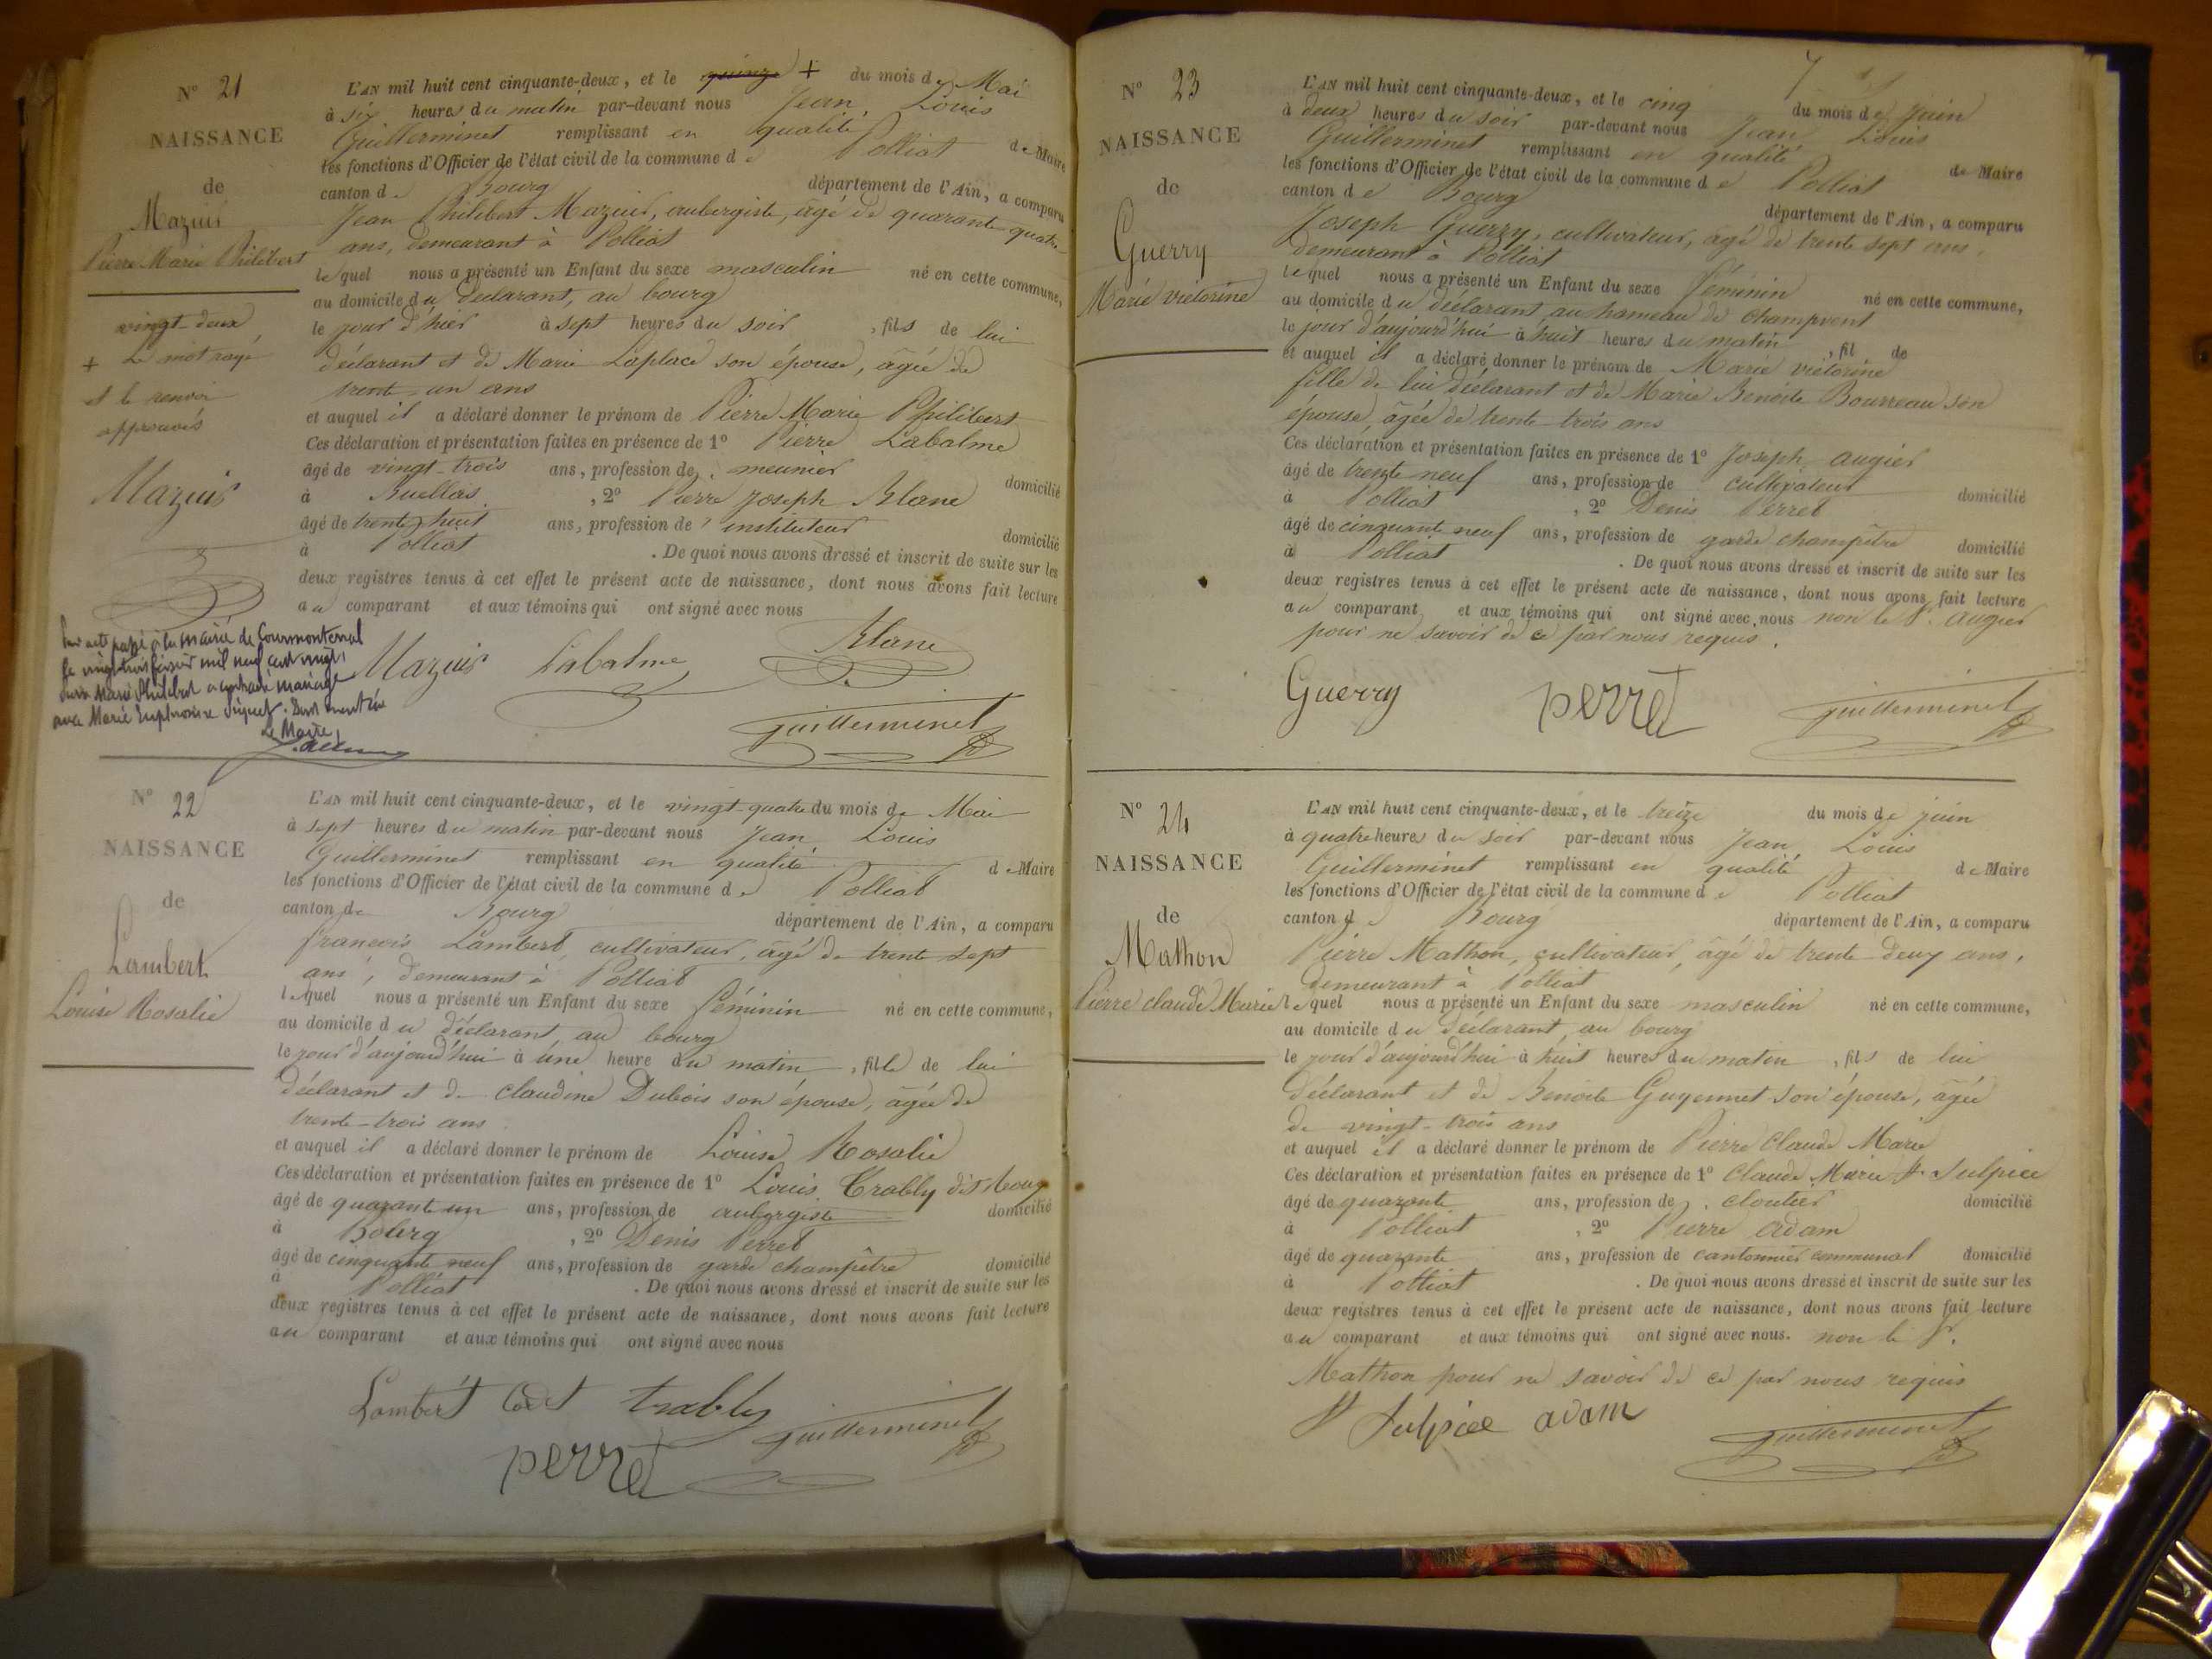 N° 21
NAISSANCE
de
Mazuis
Pierre Marie Philibert
vingt-deux
+ Le mot rayé
et le renvoi
approuvés
Mazuis
L'AN mil huit cent cinquante-deux, et le quinze + du mois de Mai
à six heures du matin par-devant nous Jean Louis
Guillerminet remplissant en qualité de Maire
les fonctions d'Officier de l'état civil de la commune de Polliat
canton de Bourg département de l'Ain, a comparu
Jean Philibert Mazuis, aubergiste, âgé de quarante quatre
ans, demeurant à Polliat
lequel nous a présenté un Enfant du sexe masculin né en cette commune,
au domicile du déclarant, au bourg
le jour d'hier à sept heures du soir, fils de lui
déclarant et de Marie Laplace son épouse, âgée de
trente-un ans
et auquel il a déclaré donner le prénom de Pierre Marie Philibert
Ces déclaration et présentation faites en présence de 1° Pierre Labalme
âgé de vingt-trois ans, profession de meunier domicilié
à Buellas, 2° Pierre Joseph Blanc
âgé de trente huit ans, profession de instituteur domicilié
à Polliat. De quoi nous avons dressé et inscrit de suite sur les
deux registres tenus à cet effet le présent acte de naissance, dont nous avons fait lecture
au comparant et aux témoins qui ont signé avec nous
Mazuis Labalme Blanc
guillerminet
Par acte passé à la mairie de Cournonterral
le vingt trois février mil neuf cent vingt,
Pierre Marie Philibert a contracté mariage
avec Marie Euphrosine . Dont mention
Le Maire,
N° 22
NAISSANCE
de
Lambert
Louise Rosalie
L'AN mil huit cent cinquante-deux, et le vingt-quatre du mois de Mai
à sept heures du matin par-devant nous Jean Louis
Guillerminet remplissant en qualité de Maire
les fonctions d'Officier de l'état civil de la commune de Polliat
canton de Bourg département de l'Ain, a comparu
françois Lambert, cultivateur, âgé de trente sept
ans, demeurant à Polliat
lequel nous a présenté un Enfant du sexe féminin né en cette commune,
au domicile du déclarant au bourg
le jour d'aujourd'hui à une heure du matin, fille de lui
déclarant et de claudine Dubois son épouse, âgée de
trente-trois ans
et auquel il a déclaré donner le prénom de Louise Rosalie
Ces déclaration et présentation faites en présence de 1° Louis Trably dit
âgé de quarante un ans, profession de aubergiste domicilié
à Bourg, 2° Denis Perret
âgé de cinquante neuf ans, profession de garde champêtre domicilié
à Polliat. De quoi nous avons dressé et inscrit de suite sur les
deux registres tenus à cet effet le présent acte de naissance, dont nous avons fait lecture
au comparant et aux témoins qui ont signé avec nous
Lambert trably
perret guillerminet
7
N° 23
NAISSANCE
de
Guerry
Marie victorine
L'AN mil huit cent cinquante-deux, et le cinq du mois de juin
à deux heures du soir par-devant nous Jean Louis
Guillerminet remplissant en qualité de Maire
les fonctions d'Officier de l'état civil de la commune de Polliat
canton de Bourg département de l'Ain, a comparu
Joseph Guerry, cultivateur, âgé de trente sept ans,
demeurant à Polliat
lequel nous a présenté un Enfant du sexe féminin né en cette commune,
au domicile du déclarant au hameau de Champvent
le jour d'aujourd'hui à huit heures du matin, fil de
et auquel il a déclaré donner le prénom de Marie victorine
fille de lui déclarant et de Marie Benoîte Bourreau son
épouse, âgée de trente-trois ans
Ces déclaration et présentation faites en présence de 1° Joseph augier
âgé de trente neuf ans, profession de cultivateur domicilié
à Polliat, 2° Denis Perret
âgé de cinquante neuf ans, profession de garde champêtre domicilié
à Polliat. De quoi nous avons dressé et inscrit de suite sur les
deux registres tenus à cet effet le présent acte de naissance, dont nous avons fait lecture
au comparant et aux témoins qui ont signé avec nous non le Sr. augier
pour ne savoir de ce par nous requis.
Guerry perret guillerminet
N° 24
NAISSANCE
de
Mathon
Pierre claude Marie
L'AN mil huit cent cinquante-deux, et le treize du mois de juin
à quatre heures du soir par-devant nous Jean Louis
Guillerminet remplissant en qualité de Maire
les fonctions d'Officier de l'état civil de la commune de Polliat
canton de Bourg département de l'Ain, a comparu
Pierre Mathon, cultivateur, âgé de trente-deux ans,
demeurant à Polliat
lequel nous a présenté un Enfant du sexe masculin né en cette commune,
au domicile du déclarant au bourg
le jour d'aujourd'hui à huit heures du matin, fils de lui
déclarant et de Benoîte Guyennet son épouse, âgée
de vingt-trois ans
et auquel il a déclaré donner le prénom de Pierre Claude Marie
Ces déclaration et présentation faites en présence de 1° Claude Marie St. Sulpice
âgé de quarante ans, profession de cloutier domicilié
à Polliat, 2° Pierre adam
âgé de quarante ans, profession de cantonnier communal domicilié
à Polliat. De quoi nous avons dressé et inscrit de suite sur les
deux registres tenus à cet effet le présent acte de naissance, dont nous avons fait lecture
au comparant et aux témoins qui ont signé avec nous. non le Sr.
Mathon pour ne savoir de ce par nous requis
St Sulpice adam
guillerminet